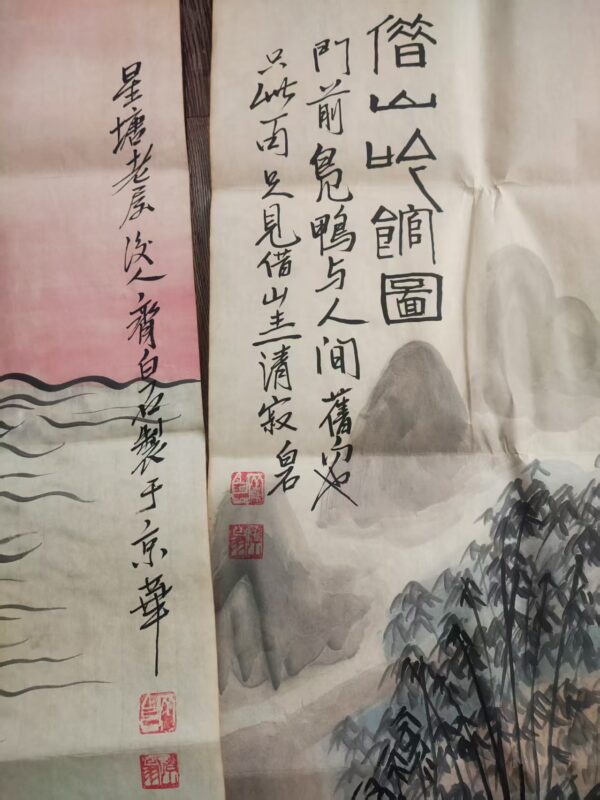 借山吟館圖
門前鳧鴨与人間舊句也
只此一句足見借山主清寂白石
星塘老屋後人齊白石製于京華